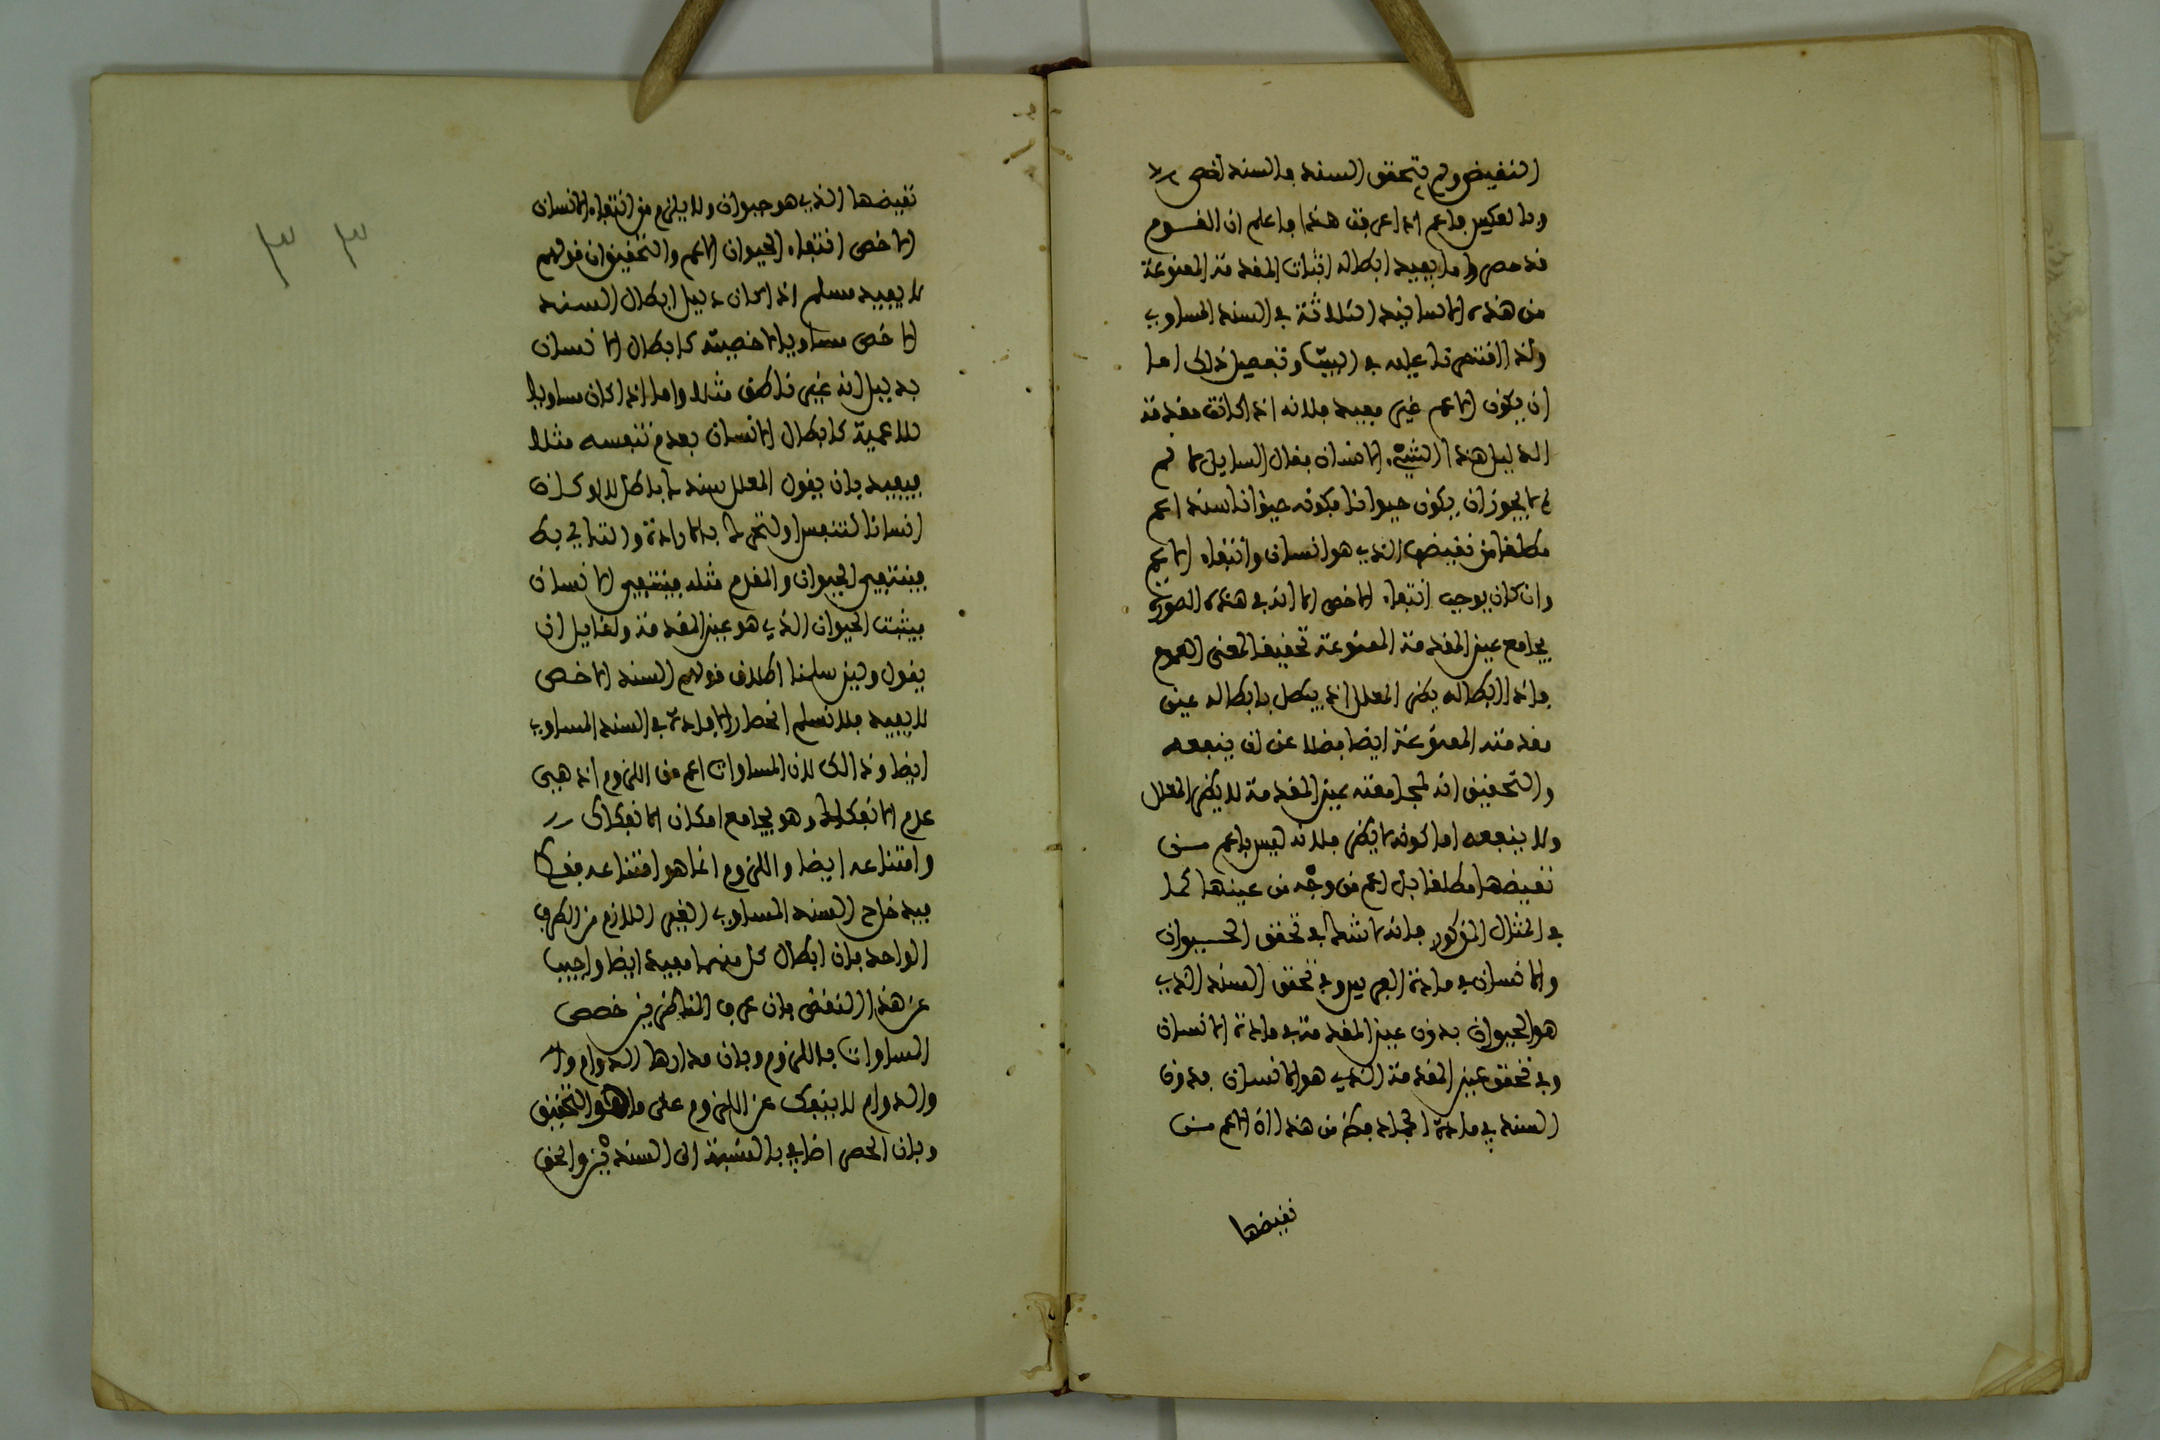 النقيض ولم يتحقق السند فالسند اخص
وبالعكس فاعم اذا عرفت هذا فاعلم ان القوم
قد حصروا ما يفيد ابطاله اثبات المقدمة الممنوعة
من هذه الاسانيد الثلاثة في السند المساوي
ولذا اقتصرنا عليه في البيت وتفصيل ذلك اما
ان يكون الاعم غير مفيد فلانه اذا كانت مقدمة
الدليل هذا الشيء انسان فقال السايل لا نم
لم لا يجوز ان يكون حيوانا فكونه حيوانا سند اعم
مطلقا من نقيضها الذي هو انسان وانتفاء الاعم
وان كان يوجب انتفاء الاخص الا انه في هذه الصورة
يجامع عين المقدمة الممنوعة تحقيقا لمعنى العموم
فاذا ابطاله يضر المعلل اذ يبطل بابطاله عين
مقدمته الممنوعة ايضا فضلا عن ان ينفعه
والتحقيق انه لمجامعته عين المقدمة لا يضر المعلل
ولا ينفعه اما كونه لا يضر فلانه ليس باعم من
نقيضها مطلقا بل اعم من وجه من عينها كما
في المثال المذكور فانه لا شك في تحقق الحيوان
والانسان في مادة الفرس وفي تحقق السند الذي
هو الحيوان بدون عين المقدمة في مادة الانسان
وفي تحقق عين المقدمة الذي هو الانسان بدون
السند في مادة الجماد فظهر من هذا ان الاعم من
نقيضها
نقيضها الذي هو حيوان ولا يلزم من انتفاء الانسان
الاخص انتفاء الحيوان الاعم والتحقيق ان قولهم
لا يفيد مسلم اذا كان دليل ابطال السند
الاخص مساويا لاخصيته كابطال الانسان
بدليل انه غير ناطق مثلا واما اذا كان مساويا
للاعمية كابطال الانسان بعدم تنفسه مثلا
فيفيد بان يقول المعلل سندك باطل لانه لو كان
انسانا لتنفس او لتحرك بالارادة والتالي بط
فينتفي الحيوان والمقدم مثله فينتفي الانسان
فيثبت الحيوان الذي هو عين المقدمة ولقايل ان
يقول ولين سلمنا اطلاق قولهم السند الاخص
لا يفيد فلا نسلم انحصار الافادة في السند المساوي
ايضا وذالك لان المساوات اعم من اللزوم اذ هي
عدم الانفكاك وهو يجامع امكان الانفكاك
وامتناعه ايضا واللزوم انما هو امتناعه فقط
فيدخل السند المساوي الغير اللازم من الطرف
الواحد فان ابطال كل منهما مفيد ايضا واجيب
عن هذا النقض بان عرف المناظرين خصص
المساوات باللزوم وبان مدارها الدوام
والدوام لا ينفك عن اللزوم على ما هو التحقيق
وبان الحصر اضافي بالنسبة الى السندين والحق